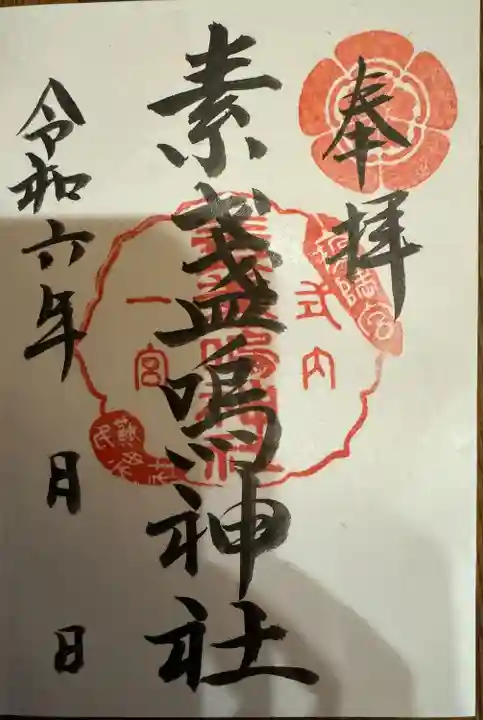 奉拝
素盞嗚神社
令和六年 月 日
式内
一宮
素盞嗚神社
蘇民